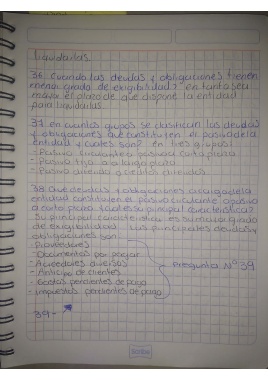 liquidarlas.
36. Cuando las deudas y obligaciones tienen
menor grado de exigibilidad? en tanto sea
mayor el plazo de que dispone la entidad
para liquidarlas
37. en cuantos grupos se clasifican las deudas
y obligaciones que constituyen el pasivo de la
entidad y cuales son? en tres grupos:
- Pasivo circulante o pasivo a corto plazo
- Pasivo fijo o a largo plazo
- Pasivo diferido o creditos diferidos
38. Que deudas y obligaciones a cargo de la
entidad constituyen el pasivo circulante o pasivo
a corto plazo y cual es su principal caracteristica?
Su principal caracteristica es su mayor grado
de exigibilidad sus principales deudas y
obligaciones son
- Proveedores
- Documentos por pagar
- Acreedores diversos - Pregunta N° 39
- Anticipo de clientes
- Gastos pendientes de pago
- Impuestos pendientes de pago
39-
Scribe